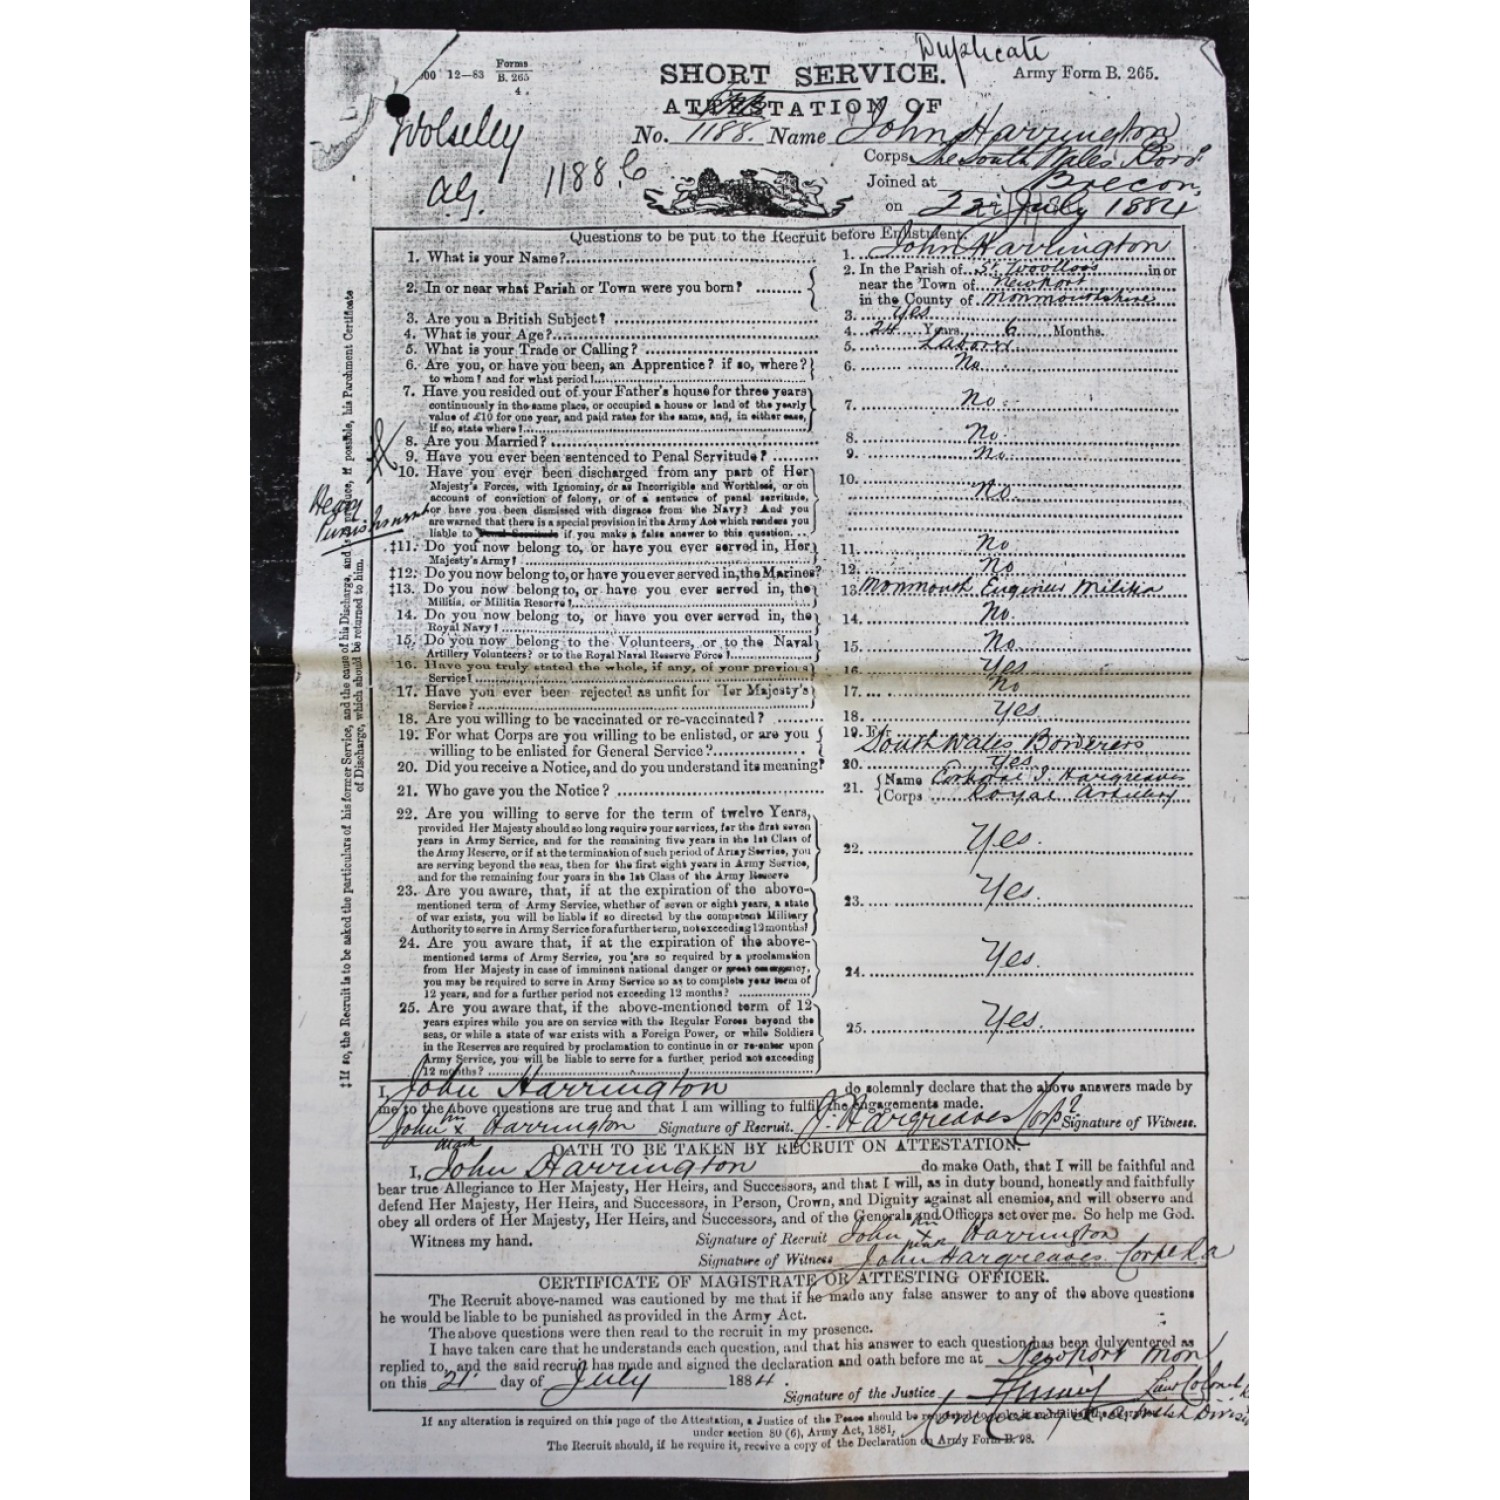 Duplicate
00 12—83 Forms B. 265 4.
SHORT SERVICE.
Army Form B. 265.
ATTESTATION OF
No. 1188. Name John Harrington
Wolseley
AG.
1188.
Corps The South Wales Bord.
Joined at Brecon,
on 22nd July 1884
Questions to be put to the Recruit before Enlistment.
1. What is your Name?
1. John Harrington
2. In or near what Parish or Town were you born?
2. In the Parish of St. Woollos in or
near the Town of Newport
in the County of Monmouthshire
3. Are you a British Subject?
3. Yes
4. What is your Age?
4. 24 Years 6 Months.
5. What is your Trade or Calling?
5. Laborer
6. Are you, or have you been, an Apprentice? if so, where?
to whom? and for what period?
6. No
7. Have you resided out of your Father's house for three years
continuously in the same place, or occupied a house or land of the yearly
value of £10 for one year, and paid rates for the same, and, in either case,
if so, state where?
7. No.
8. Are you Married?
8. No.
9. Have you ever been sentenced to Penal Servitude?
9. No.
10. Have you ever been discharged from any part of Her
Majesty's Forces, with Ignominy, or as Incorrigible and Worthless, or on
account of conviction of felony, or of a sentence of penal servitude,
or have you been dismissed with disgrace from the Navy? And you
are warned that there is a special provision in the Army Act which renders you
liable to Penal Servitude if you make a false answer to this question.
10. No.
Heavy
Punishment
‡11. Do you now belong to, or have you ever served in, Her
Majesty's Army?
11. No
‡12. Do you now belong to, or have you ever served in, the Marines?
12. No
‡13. Do you now belong to, or have you ever served in, the
Militia, or Militia Reserve?
13 Monmouth Engineer Militia
14. Do you now belong to, or have you ever served in, the
Royal Navy?
14. No.
15. Do you now belong to the Volunteers, or to the Naval
Artillery Volunteers? or to the Royal Naval Reserve Force?
15. No.
16. Have you truly stated the whole, if any, of your previous
Service?
16 Yes
17. Have you ever been rejected as unfit for Her Majesty's
Service?
17. No
18. Are you willing to be vaccinated or re-vaccinated?
18. Yes.
19. For what Corps are you willing to be enlisted, or are you
willing to be enlisted for General Service?
19. For South Wales Borderers
20. Did you receive a Notice, and do you understand its meaning?
20. Yes
21. Who gave you the Notice?
21. Name Corporal J. Hargreaves
Corps Royal Artillery
22. Are you willing to serve for the term of twelve Years,
provided Her Majesty should so long require your services, for the first seven
years in Army Service, and for the remaining five years in the 1st Class of
the Army Reserve, or if at the termination of such period of Army Service, you
are serving beyond the seas, then for the first eight years in Army Service,
and for the remaining four years in the 1st Class of the Army Reserve
22. Yes.
23. Are you aware, that, if at the expiration of the above-
mentioned term of Army Service, whether of seven or eight years, a state
of war exists, you will be liable if so directed by the competent Military
Authority to serve in Army Service for a further term, not exceeding 12 months?
23. Yes.
24. Are you aware that, if at the expiration of the above-
mentioned terms of Army Service, you are so required by a proclamation
from Her Majesty in case of imminent national danger or great emergency,
you may be required to serve in Army Service so as to complete your term of
12 years, and for a further period not exceeding 12 months?
24. Yes.
25. Are you aware that, if the above-mentioned term of 12
years expires while you are on service with the Regular Forces beyond the
seas, or while a state of war exists with a Foreign Power, or while Soldiers
in the Reserves are required by proclamation to continue in or re-enter upon
Army Service, you will be liable to serve for a further period not exceeding
12 months?
25. Yes.
‡ If so, the Recruit is to be asked the particulars of his former Service, and the cause of his Discharge, and produce, if possible, his Parchment Certificate
of Discharge, which should be returned to him.
I, John Harrington do solemnly declare that the above answers made by
me to the above questions are true and that I am willing to fulfil the engagements made.
John his X mark Harrington Signature of Recruit. J. Hargreaves Corpl Signature of Witness.
OATH TO BE TAKEN BY RECRUIT ON ATTESTATION.
I, John Harrington do make Oath, that I will be faithful and
bear true Allegiance to Her Majesty, Her Heirs, and Successors, and that I will, as in duty bound, honestly and faithfully
defend Her Majesty, Her Heirs, and Successors, in Person, Crown, and Dignity against all enemies, and will observe and
obey all orders of Her Majesty, Her Heirs, and Successors, and of the Generals and Officers set over me. So help me God.
Witness my hand. Signature of Recruit John his X mark Harrington
Signature of Witness John Hargreaves Corpl R a
CERTIFICATE OF MAGISTRATE OR ATTESTING OFFICER.
The Recruit above-named was cautioned by me that if he made any false answer to any of the above questions
he would be liable to be punished as provided in the Army Act.
The above questions were then read to the recruit in my presence.
I have taken care that he understands each question, and that his answer to each question has been duly entered as
replied to, and the said recruit has made and signed the declaration and oath before me at Newport Mon
on this 21 day of July 1884.
Signature of the Justice
If any alteration is required on this page of the Attestation, a Justice of the Peace should be requested to
under section 80 (6), Army Act, 1881.
The Recruit should, if he require it, receive a copy of the Declaration on Army Form B. 98.